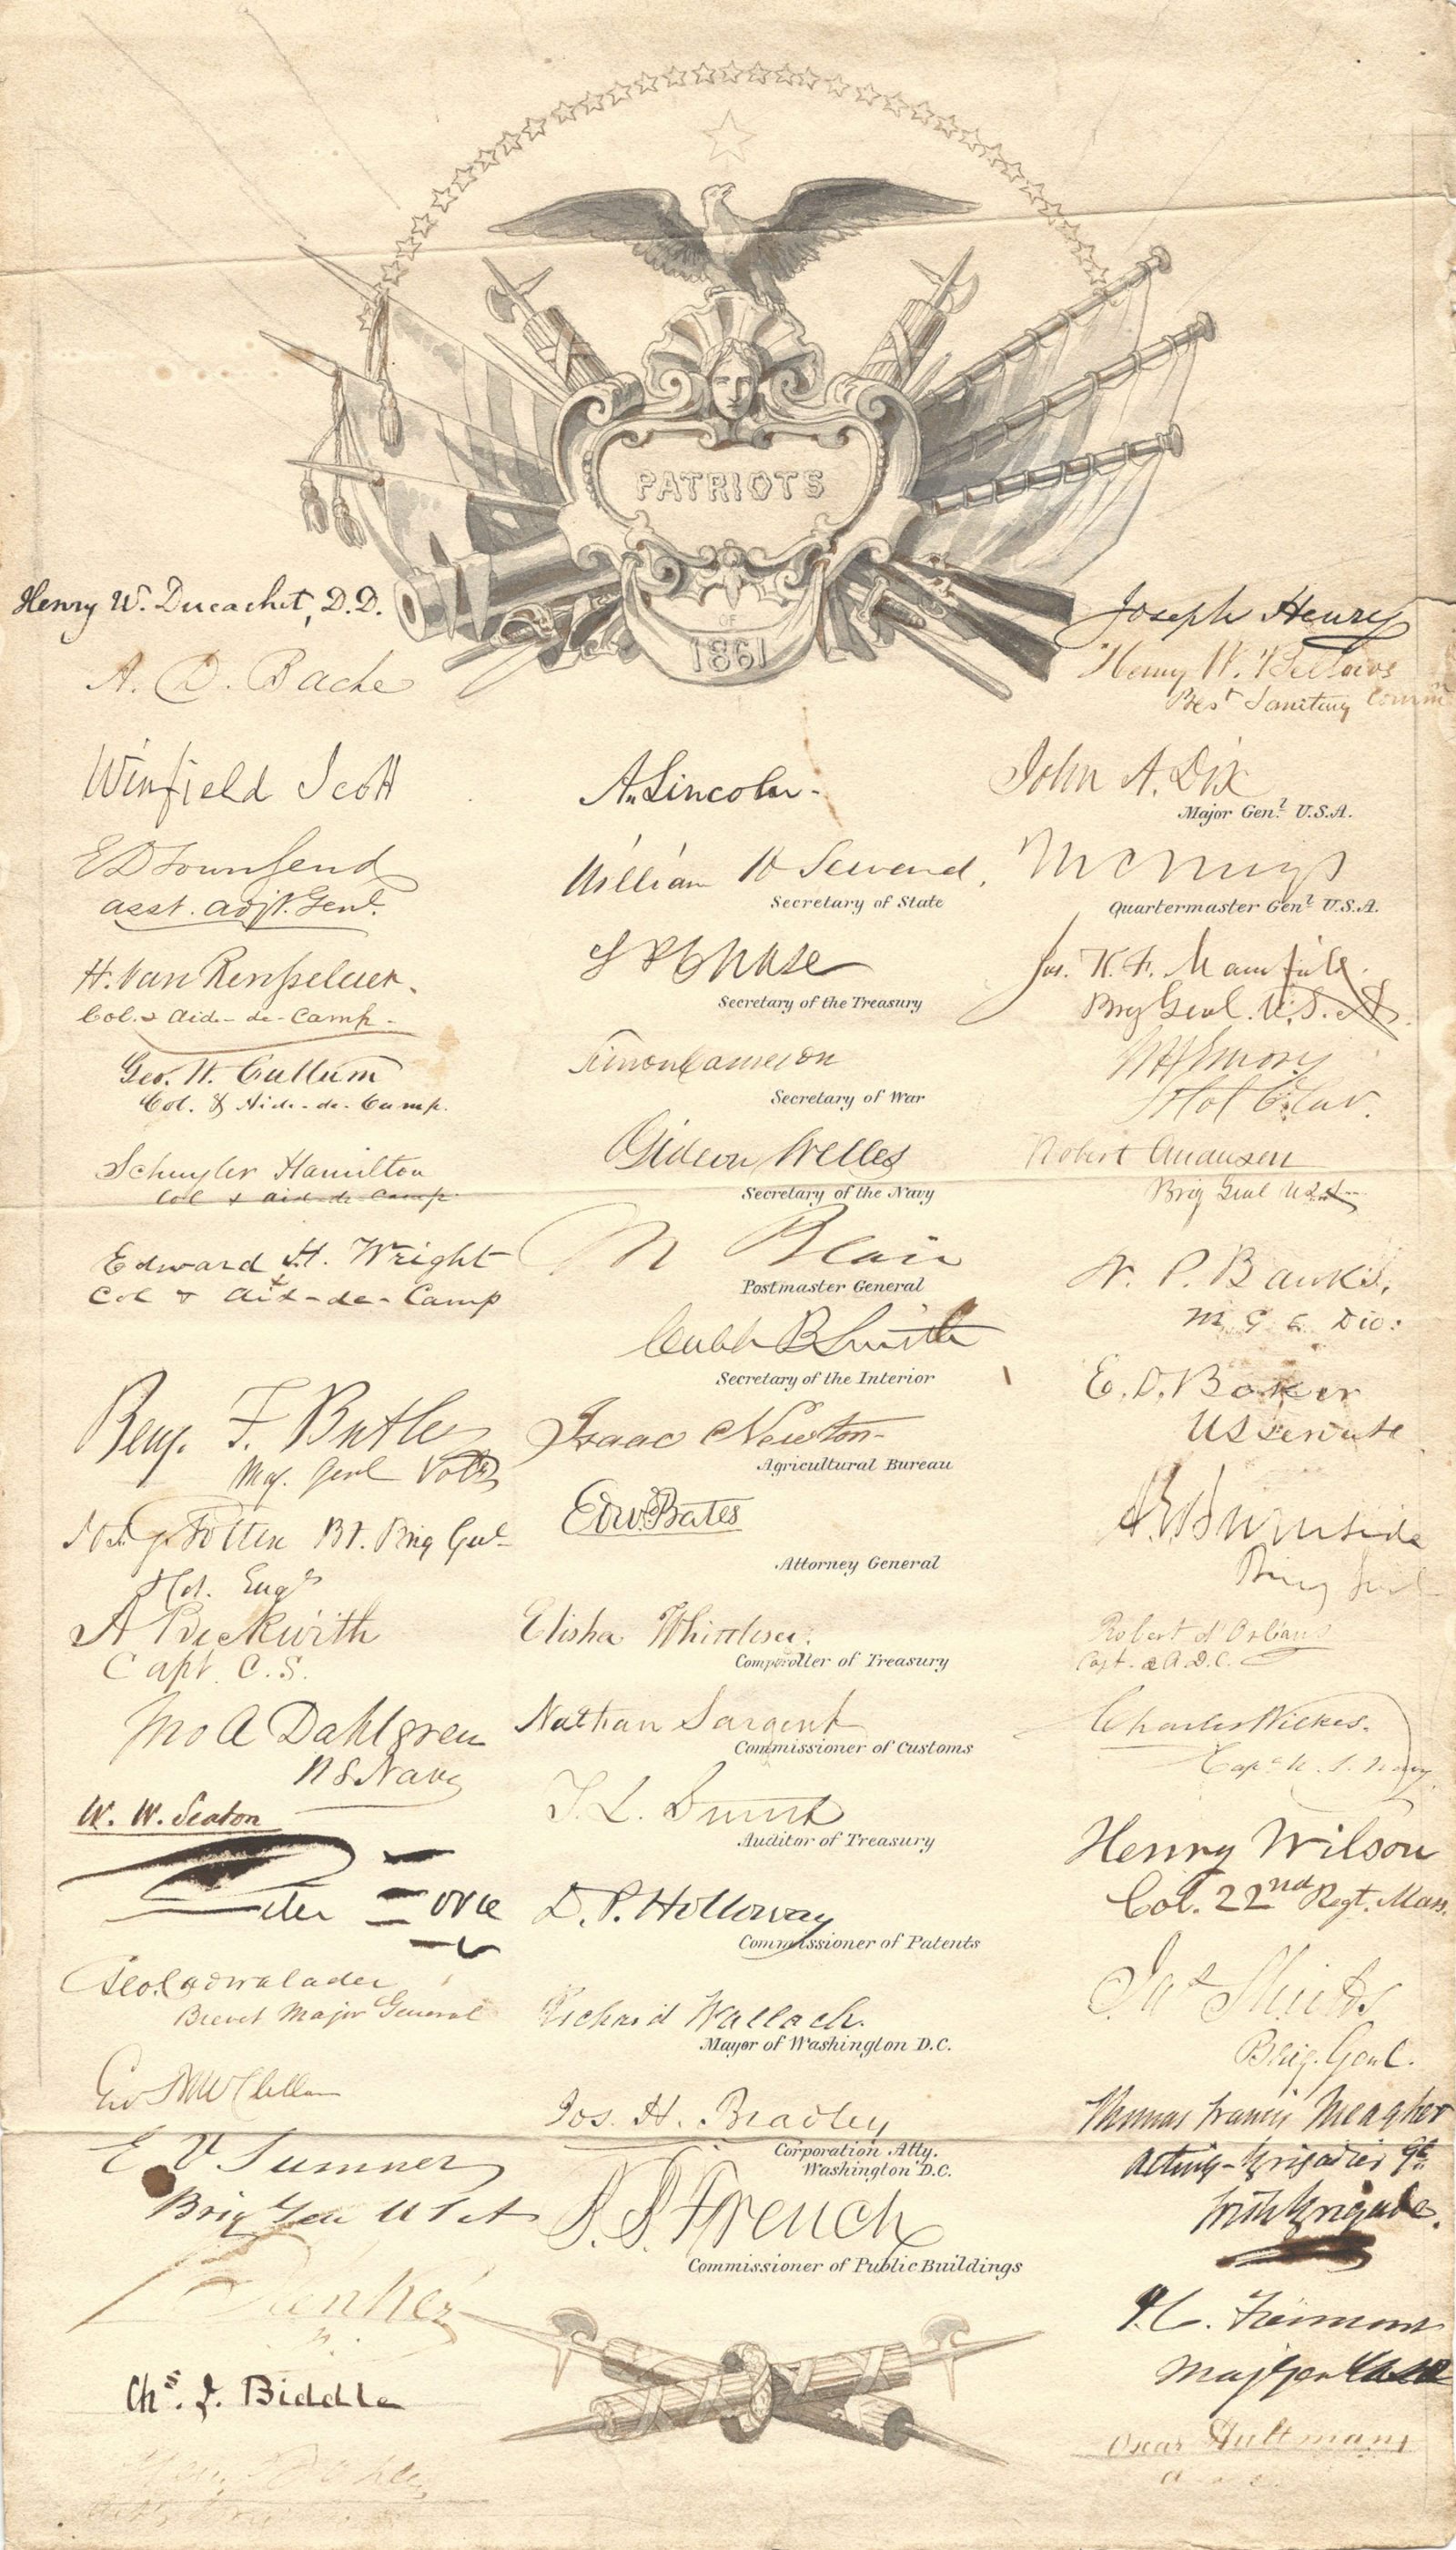 PATRIOTS
OF
1861
Henry W. Ducachet, D.D.
A. D. Bache
Winfield Scott
E D Townsend
asst. adjt. Genl.
H. Van Rensselaer.
Col. & Aide-de-Camp
Geo. W. Cullum
Col. & Aide-de-Camp.
Schuyler Hamilton
Col & Aid-de Camp.
Edward H. Wright
Col & Aid-de-Camp
Benj. F. Butler
Maj. Genl Vols
Totten Bt. Brig Genl
Col. Engrs
A Beckwith
Capt. C.S.
Jno A Dahlgren
U S Navy
W. W. Seaton
Peter Force
Geo. Cadwalader
Brevet Major General
Geo B McClellan
E V Sumner
Brig Gen U S A
Chs. J. Biddle
A. Lincoln.
William H Seward.
Secretary of State
S P Chase
Secretary of the Treasury
Simon Cameron
Secretary of War
Gideon Welles
Secretary of the Navy
M Blair
Postmaster General
Caleb B Smith
Secretary of the Interior
Isaac Newton
Agricultural Bureau
Edwd. Bates
Attorney General
Elisha Whittlesey.
Comptroller of Treasury
Nathan Sargent
Commissioner of Customs
T. L. Smith
Auditor of Treasury
D. P. Holloway
Commissioner of Patents
Richard Wallach.
Mayor of Washington D.C.
Jos. H. Bradley
Corporation Atty.
Washington D.C.
B. B. French
Commissioner of Public Buildings
Joseph Henry
Henry W. Bellows
Pres't Sanitary Comm
John A. Dix
Major Genl. U.S.A.
M C Meigs
Quartermaster Genl. U.S.A.
Jos. K. F. Mansfield.
Brig Genl. U.S.A.
W H Emory
Lt Col 6. Cav.
Robert Anderson
Brig Genl U.S.A.
N. P. Banks,
M. G. C. Div:
E. D. Baker
US Senate
A E Burnside
Brig Genl
Robert d'Orléans
Capt. & A.D.C.
Charles Wilkes.
Capt U. S. Navy.
Henry Wilson
Col. 22nd Regt. Mass.
Jas Shields
Brig. Genl.
Thomas Francis Meagher
Acting-Brigadier Gl.
Irish Brigade.
J. C. Fremont
Maj Gen USA
Oscar Hultmans